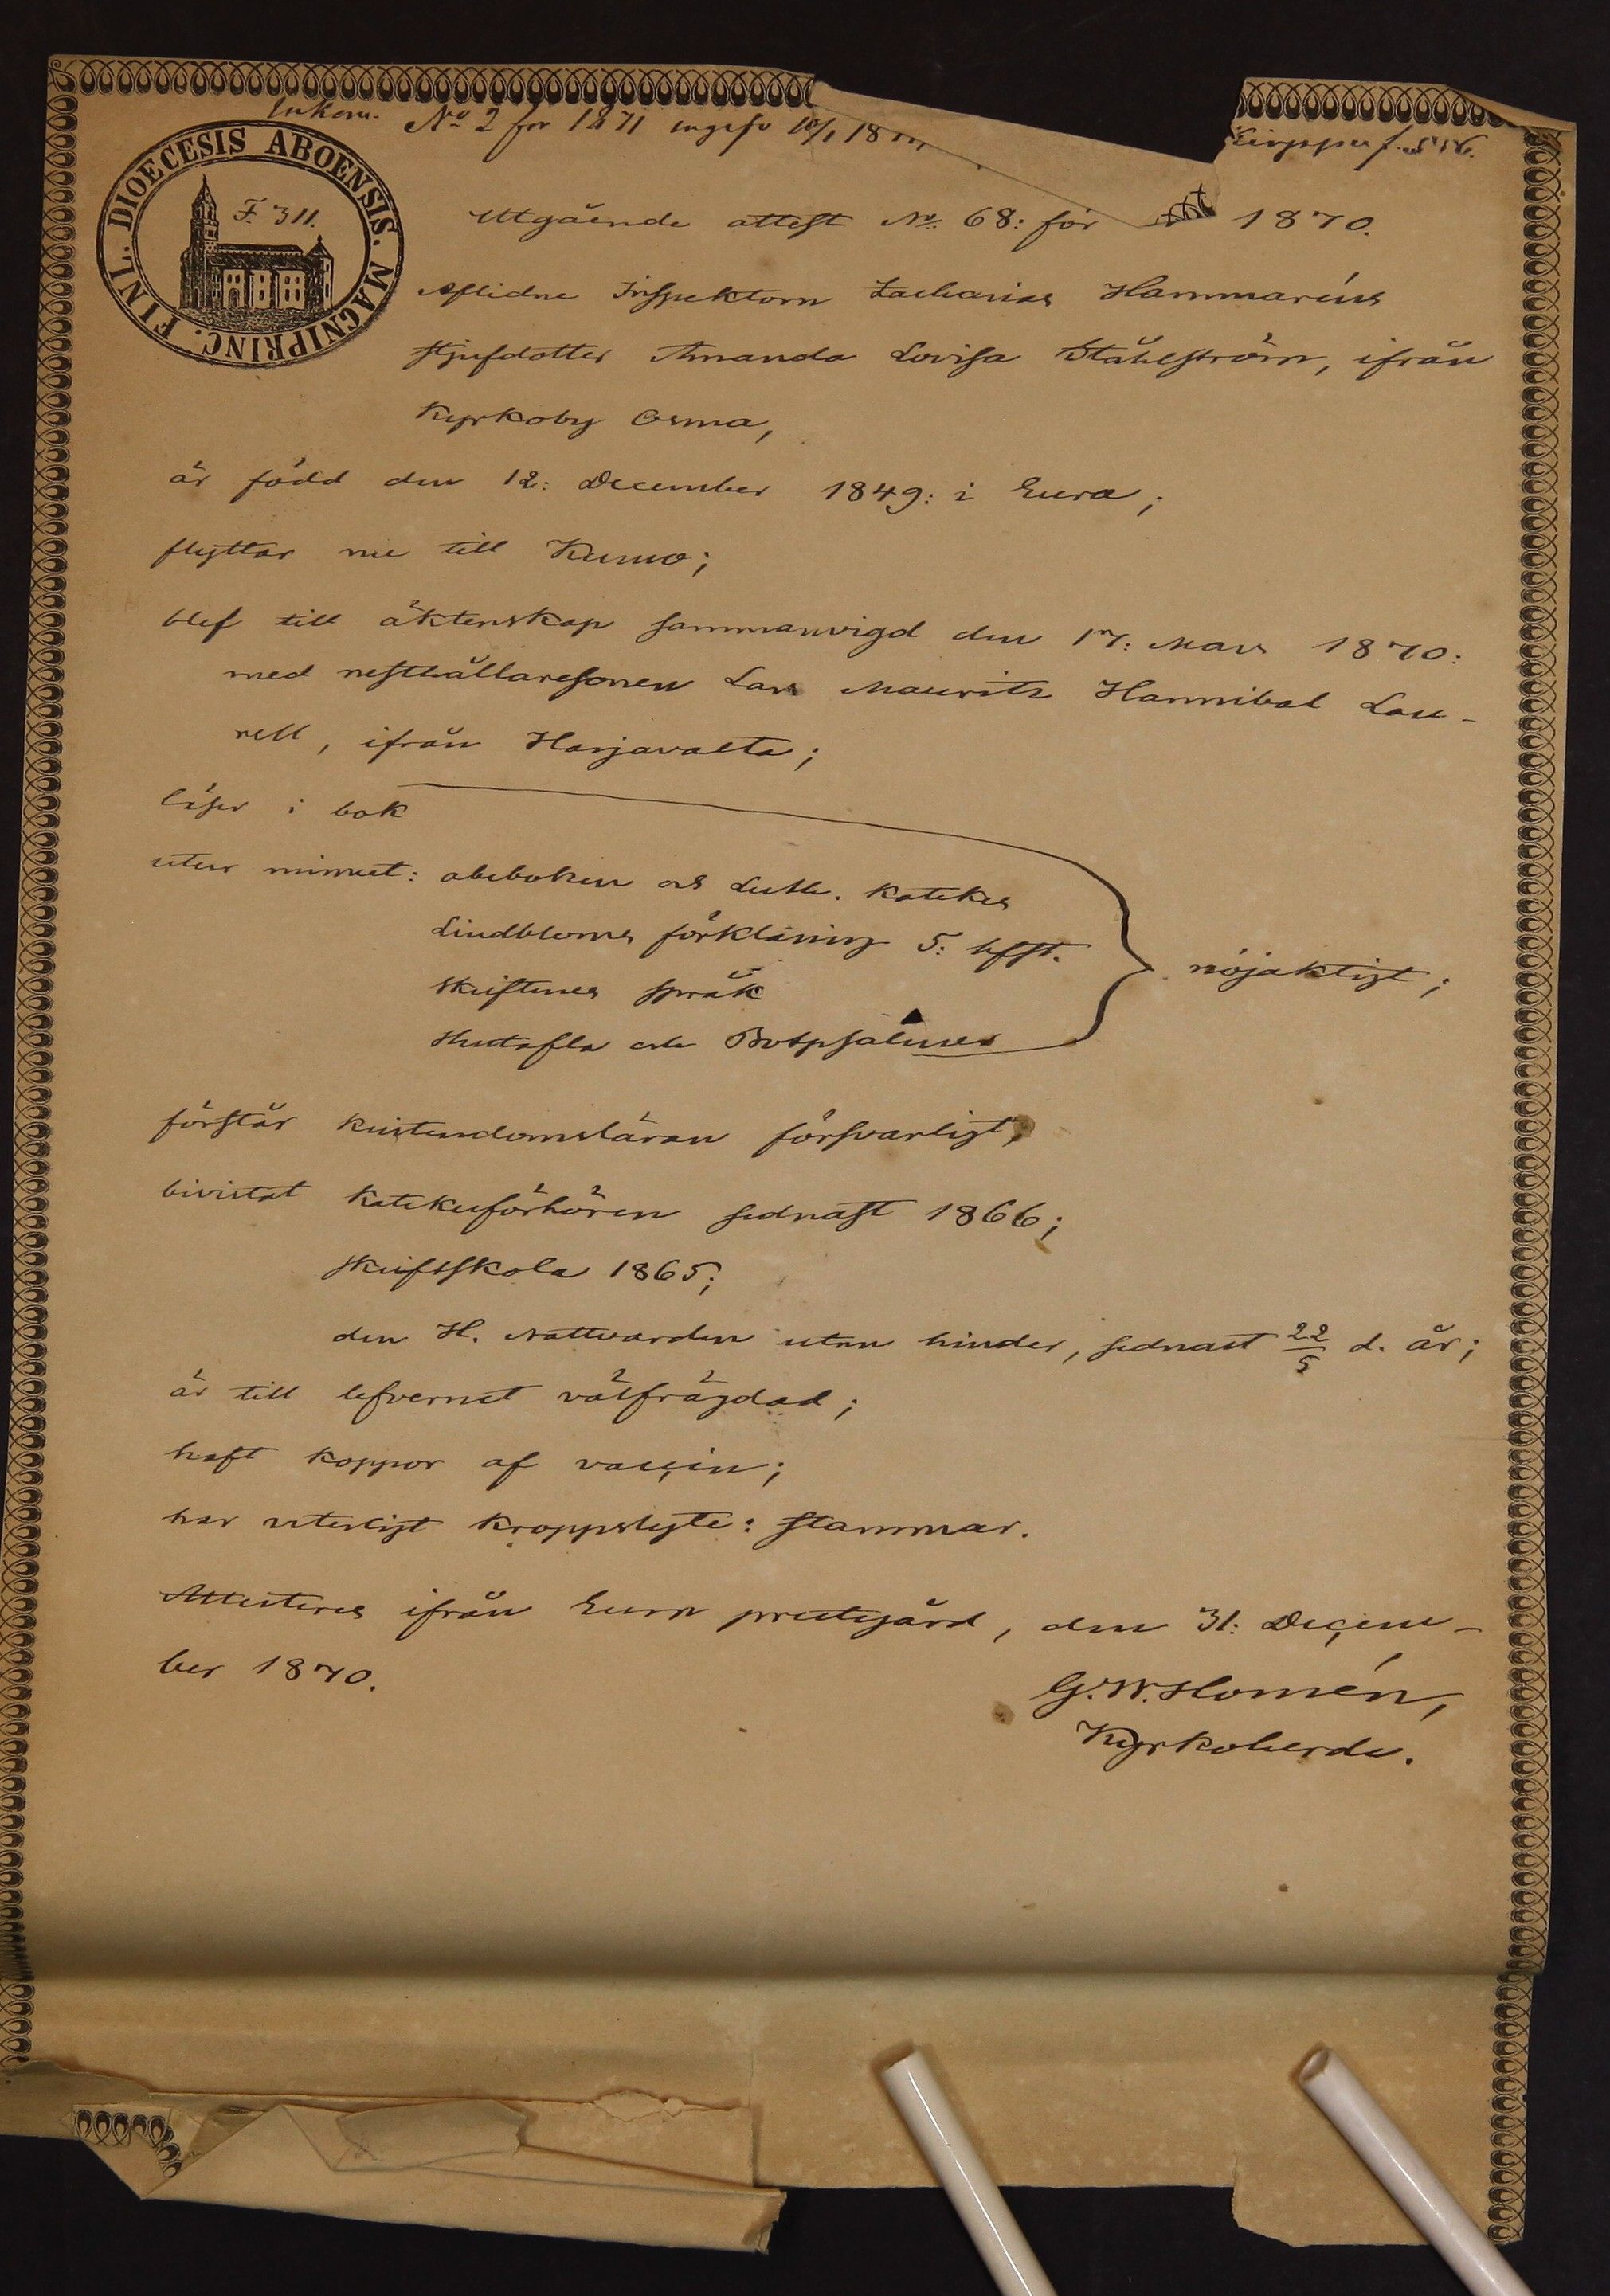 Inkom. No 2 for 1871 ingifv 10/1 18
DIOECESIS ABOENSIS. MAGNIPRINC. FINL.
F. 311.
Utgående attest No: 68: för 1870.
Aflidne Inspektorn Zacharias Hammaréns
stjufdotter Amanda Lovisa Ståhlström, ifrån
Kyrkoby Osma,
är född den 12: December 1849: i Eura;
flyttar nu till Kumo;
blef till äktenskap sammanvigd den 17: Mars 1870:
med rusthållaresonen Lars Maurits Hannibal Lau-
rell, ifrån Harjavalta;
läser i bok
utur minnet: abcboken och Luth. katekes
Lindbloms förklaring 5: hfst.
skriftenes språk
Hustafla och Botpsalmer
nöjaktigt;
förstår kristendomsläran försvarligt;
bivistat katekesförhören sednast 1866;
skriftskola 1865;
den H. Nattvarden utan hinder, sednast 22/5 d. år;
är till lefvernet välfrägdad;
haft koppor af vaccin;
har uterligt kroppslyte: stammar.
Attesteres ifrån Eura prestgård, den 31: Decem-
ber 1870.
G. W. Homén,
Kyrkoherde.